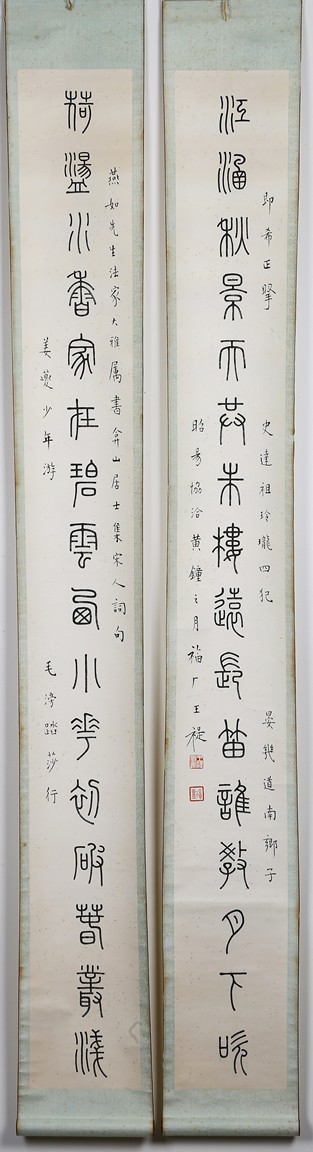 荷盪水香家在碧雲西小花初破春叢淺
燕如先生法家大雅属書弇山居士集宋人詞句
姜夔少年游　毛滂踏莎行
江涵秋景天共朱樓遠長笛誰教月下吹
即希正擘　史達祖玲瓏四犯　晏幾道南鄉子
昭易協洽黃鐘之月福厂王禔